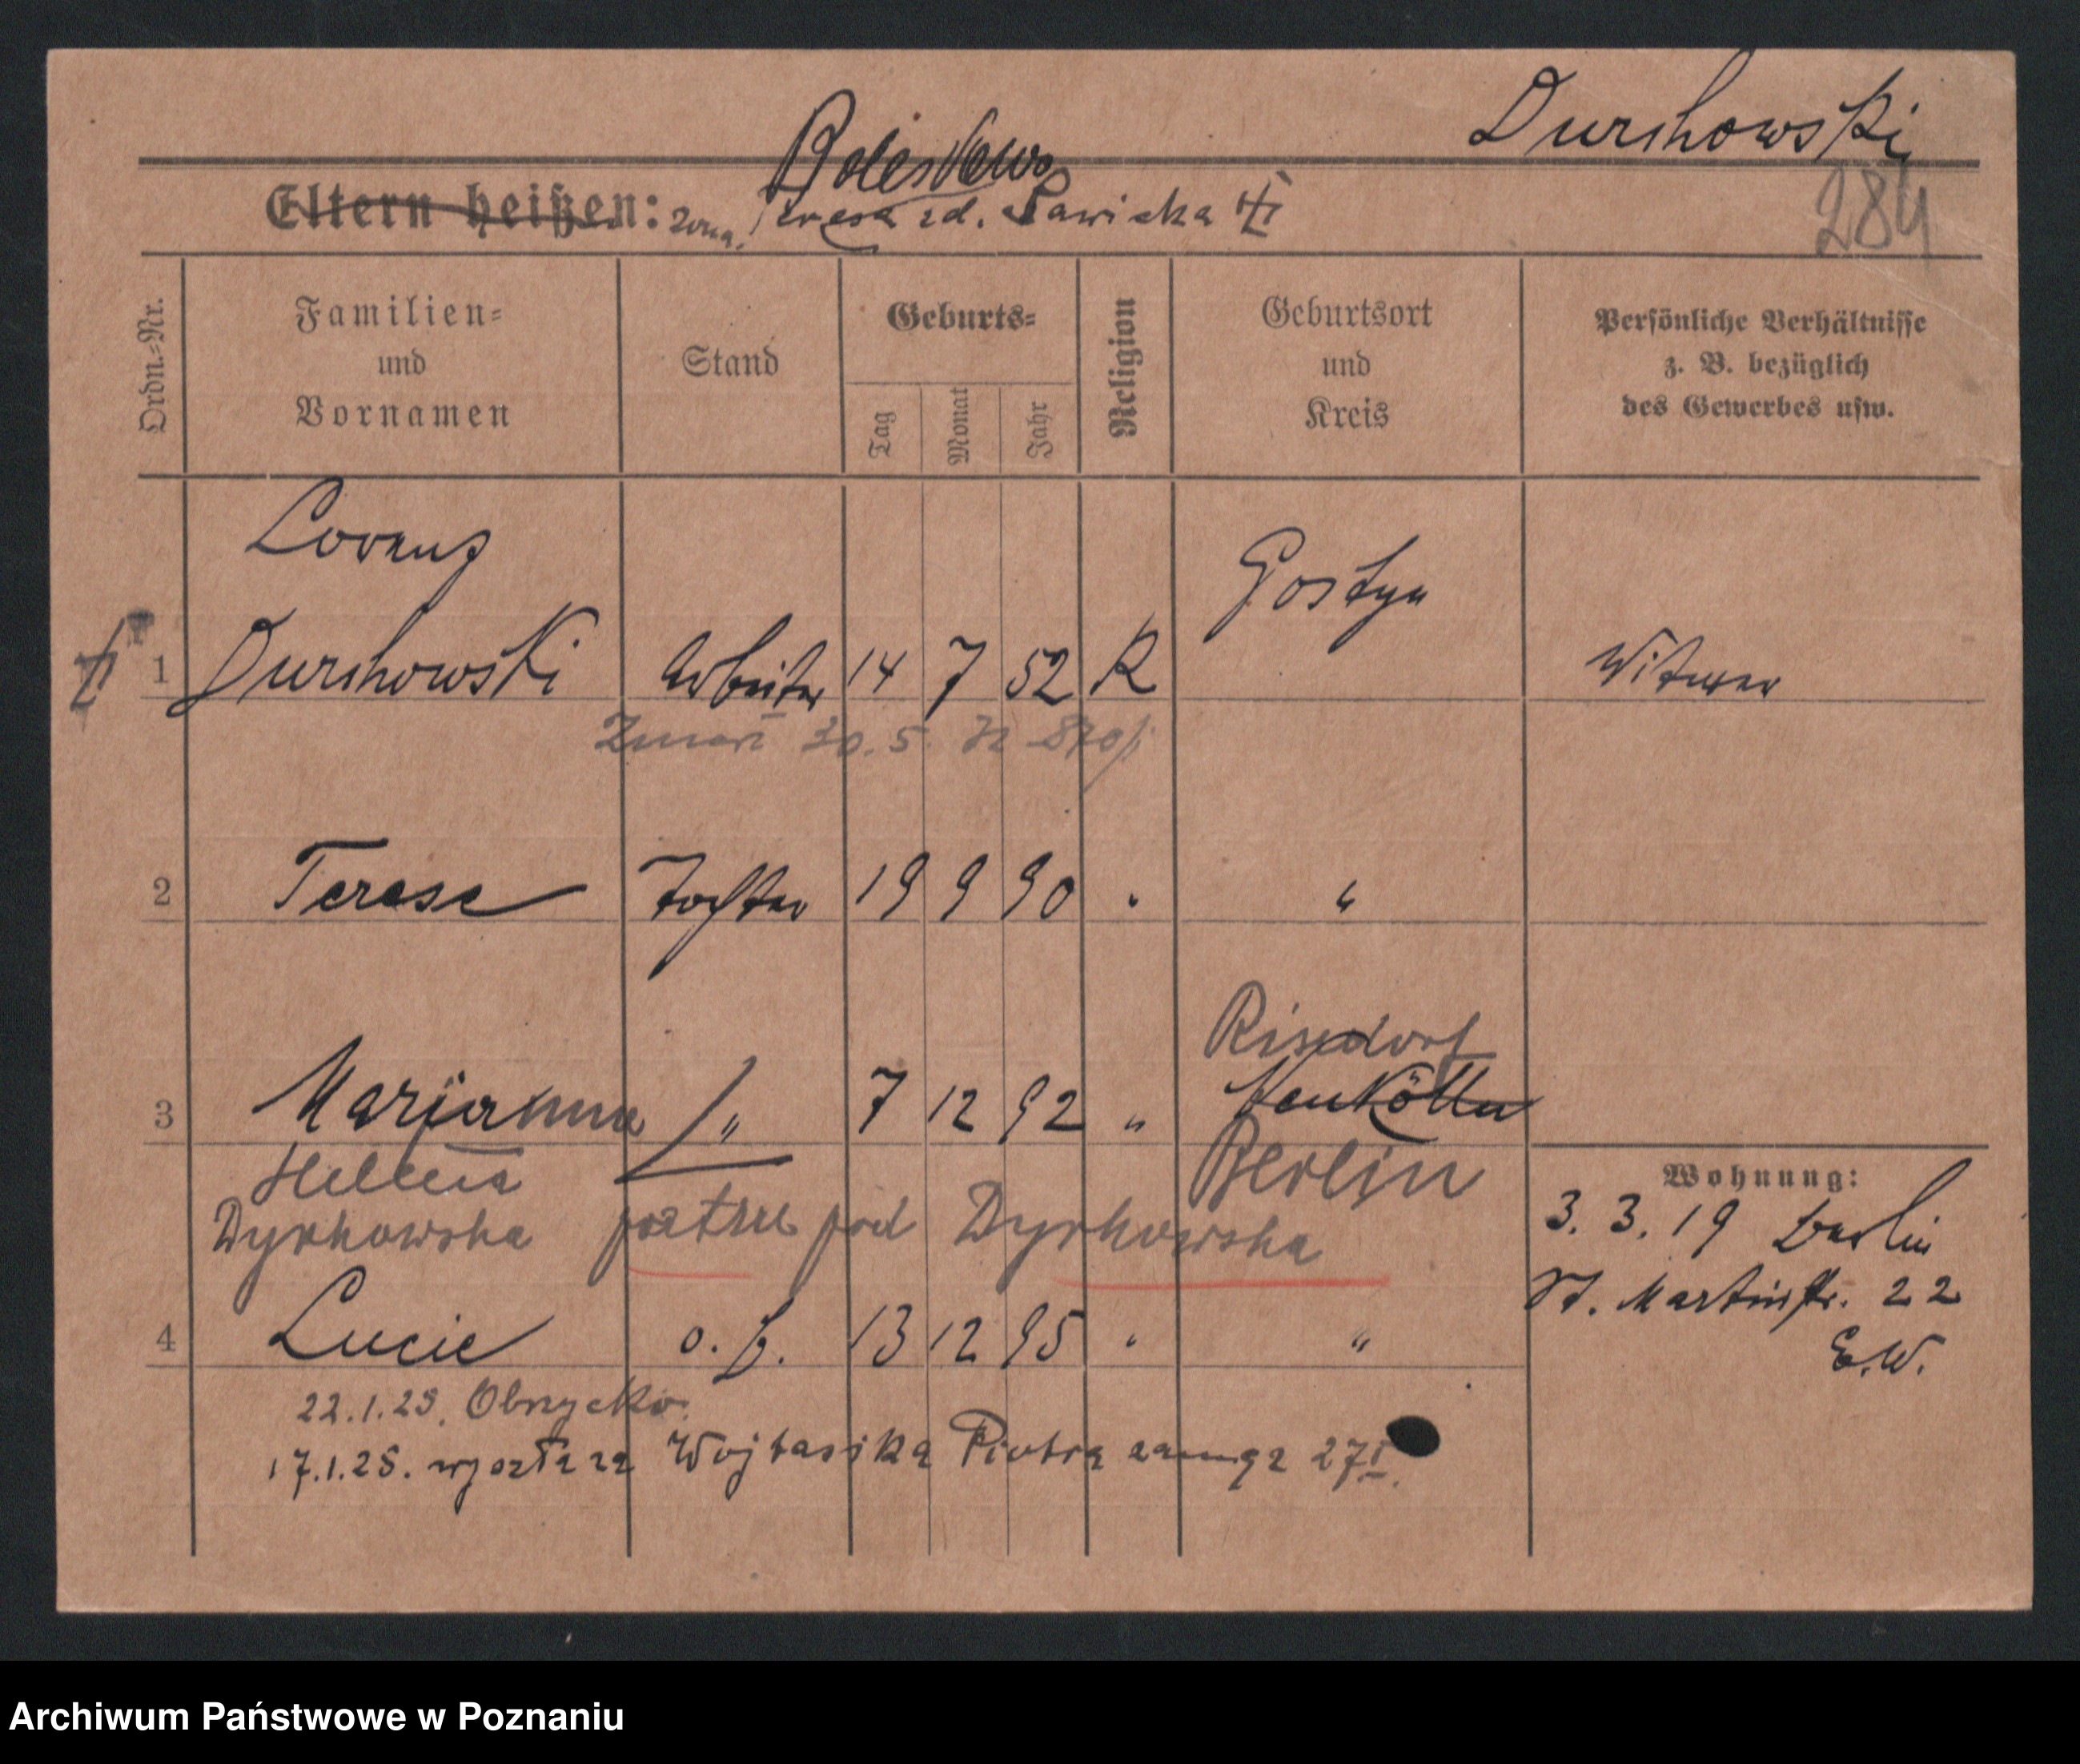 Durchowski
284
Bolesława
Eltern heißen: żona Teresa zd. Sawicka
Ordn.-Nr.
Familien- und Vornamen
Stand
Geburts-
Tag
Monat
Jahr
Religion
Geburtsort und Kreis
Persönliche Verhältnisse z. B. bezüglich des Gewerbes usw.
Lorenz Gostyn
1 Durchowski Arbeiter 14 7 52 K Witwer
Zmarł 30.5.
2 Terese Tochter 19 9 90 " "
Rixdorf
3 Marianna " 7 12 92 " Neukölln
Helena Berlin
Dyrkowska patrz pod Dyrkowska
4 Lucie o. B. 13 12 95 " "
Wohnung:
3. 3. 19 Berlin
St. Martinstr. 22
E.W.
22.1.25. Obrzycko
17.1.25. wyszła za Wojtasika Piotra 27
Archiwum Państwowe w Poznaniu